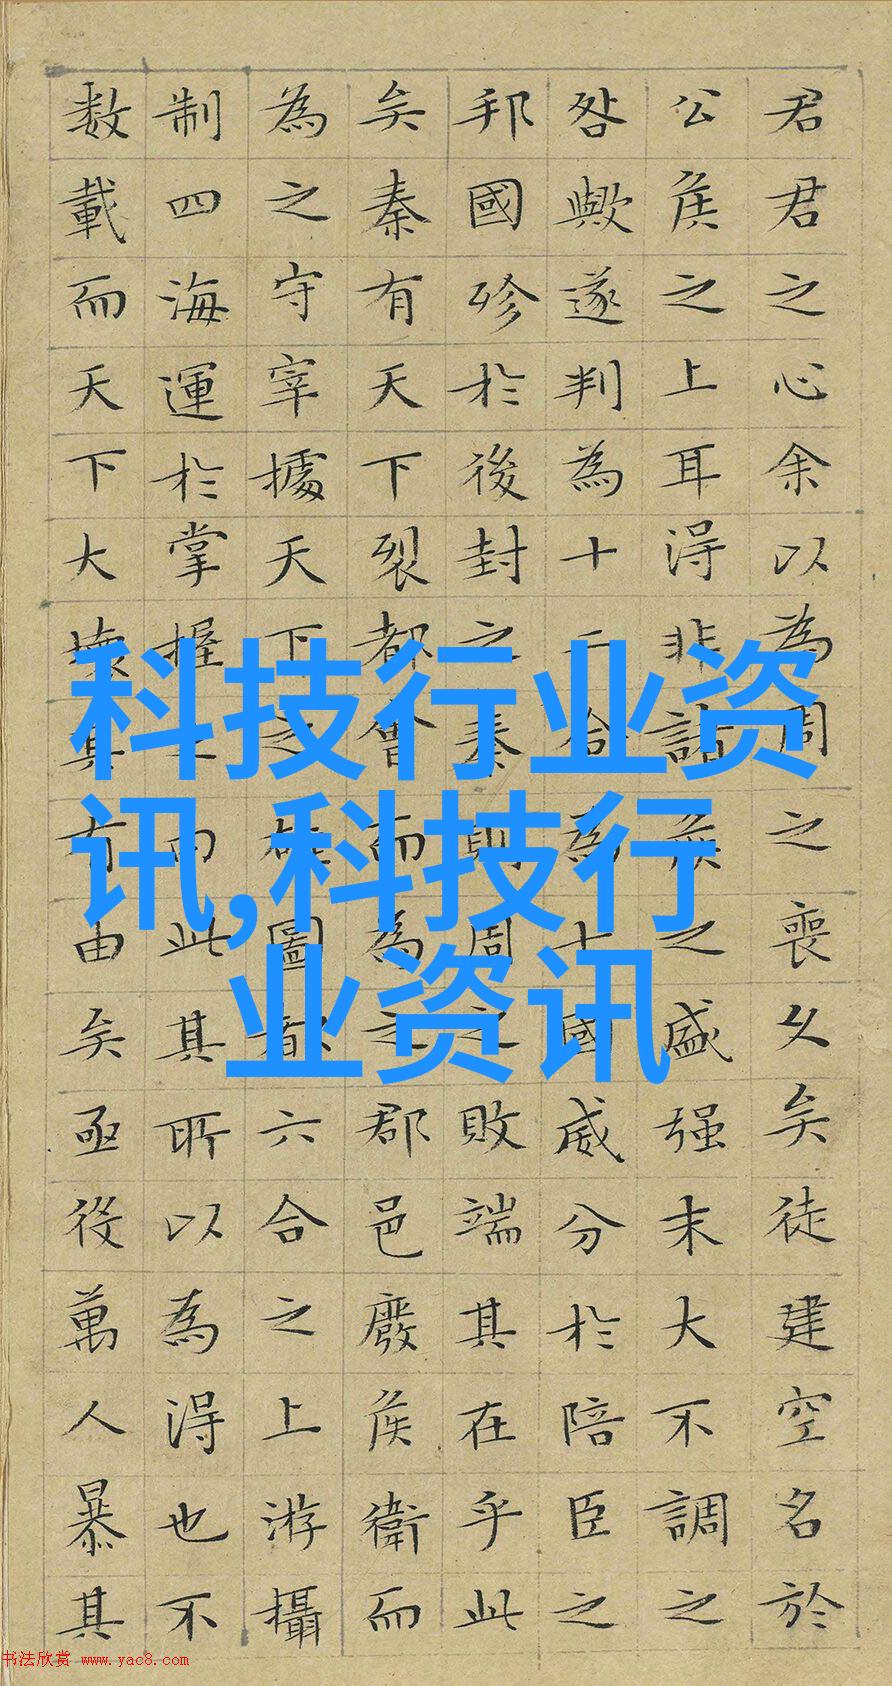 君君之心余以為周之喪久矣徒建空名於
公侯之上耳得非諸侯之盛强末大不調之
咎歟遂判為十二合為七國威分於陪臣之
邦國殄於後封之秦則周之敗端其在乎此
矣秦有天下裂都會而為之郡邑廢侯衛而
為之守宰據天下之雄圖都六合之上游攝
制四海運於掌握之内此其所以為得也不
数載而天下大壞其有由矣亟役萬人暴其
科技行业资
讯,科技行
业资讯
书法欣赏 www.yac8.com